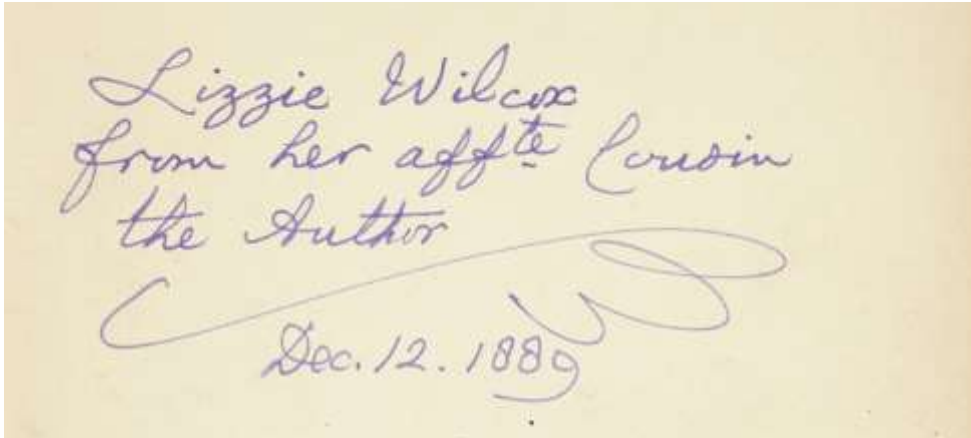 Lizzie Wilcox
from her affte Cousin
the Author
Dec. 12. 1889